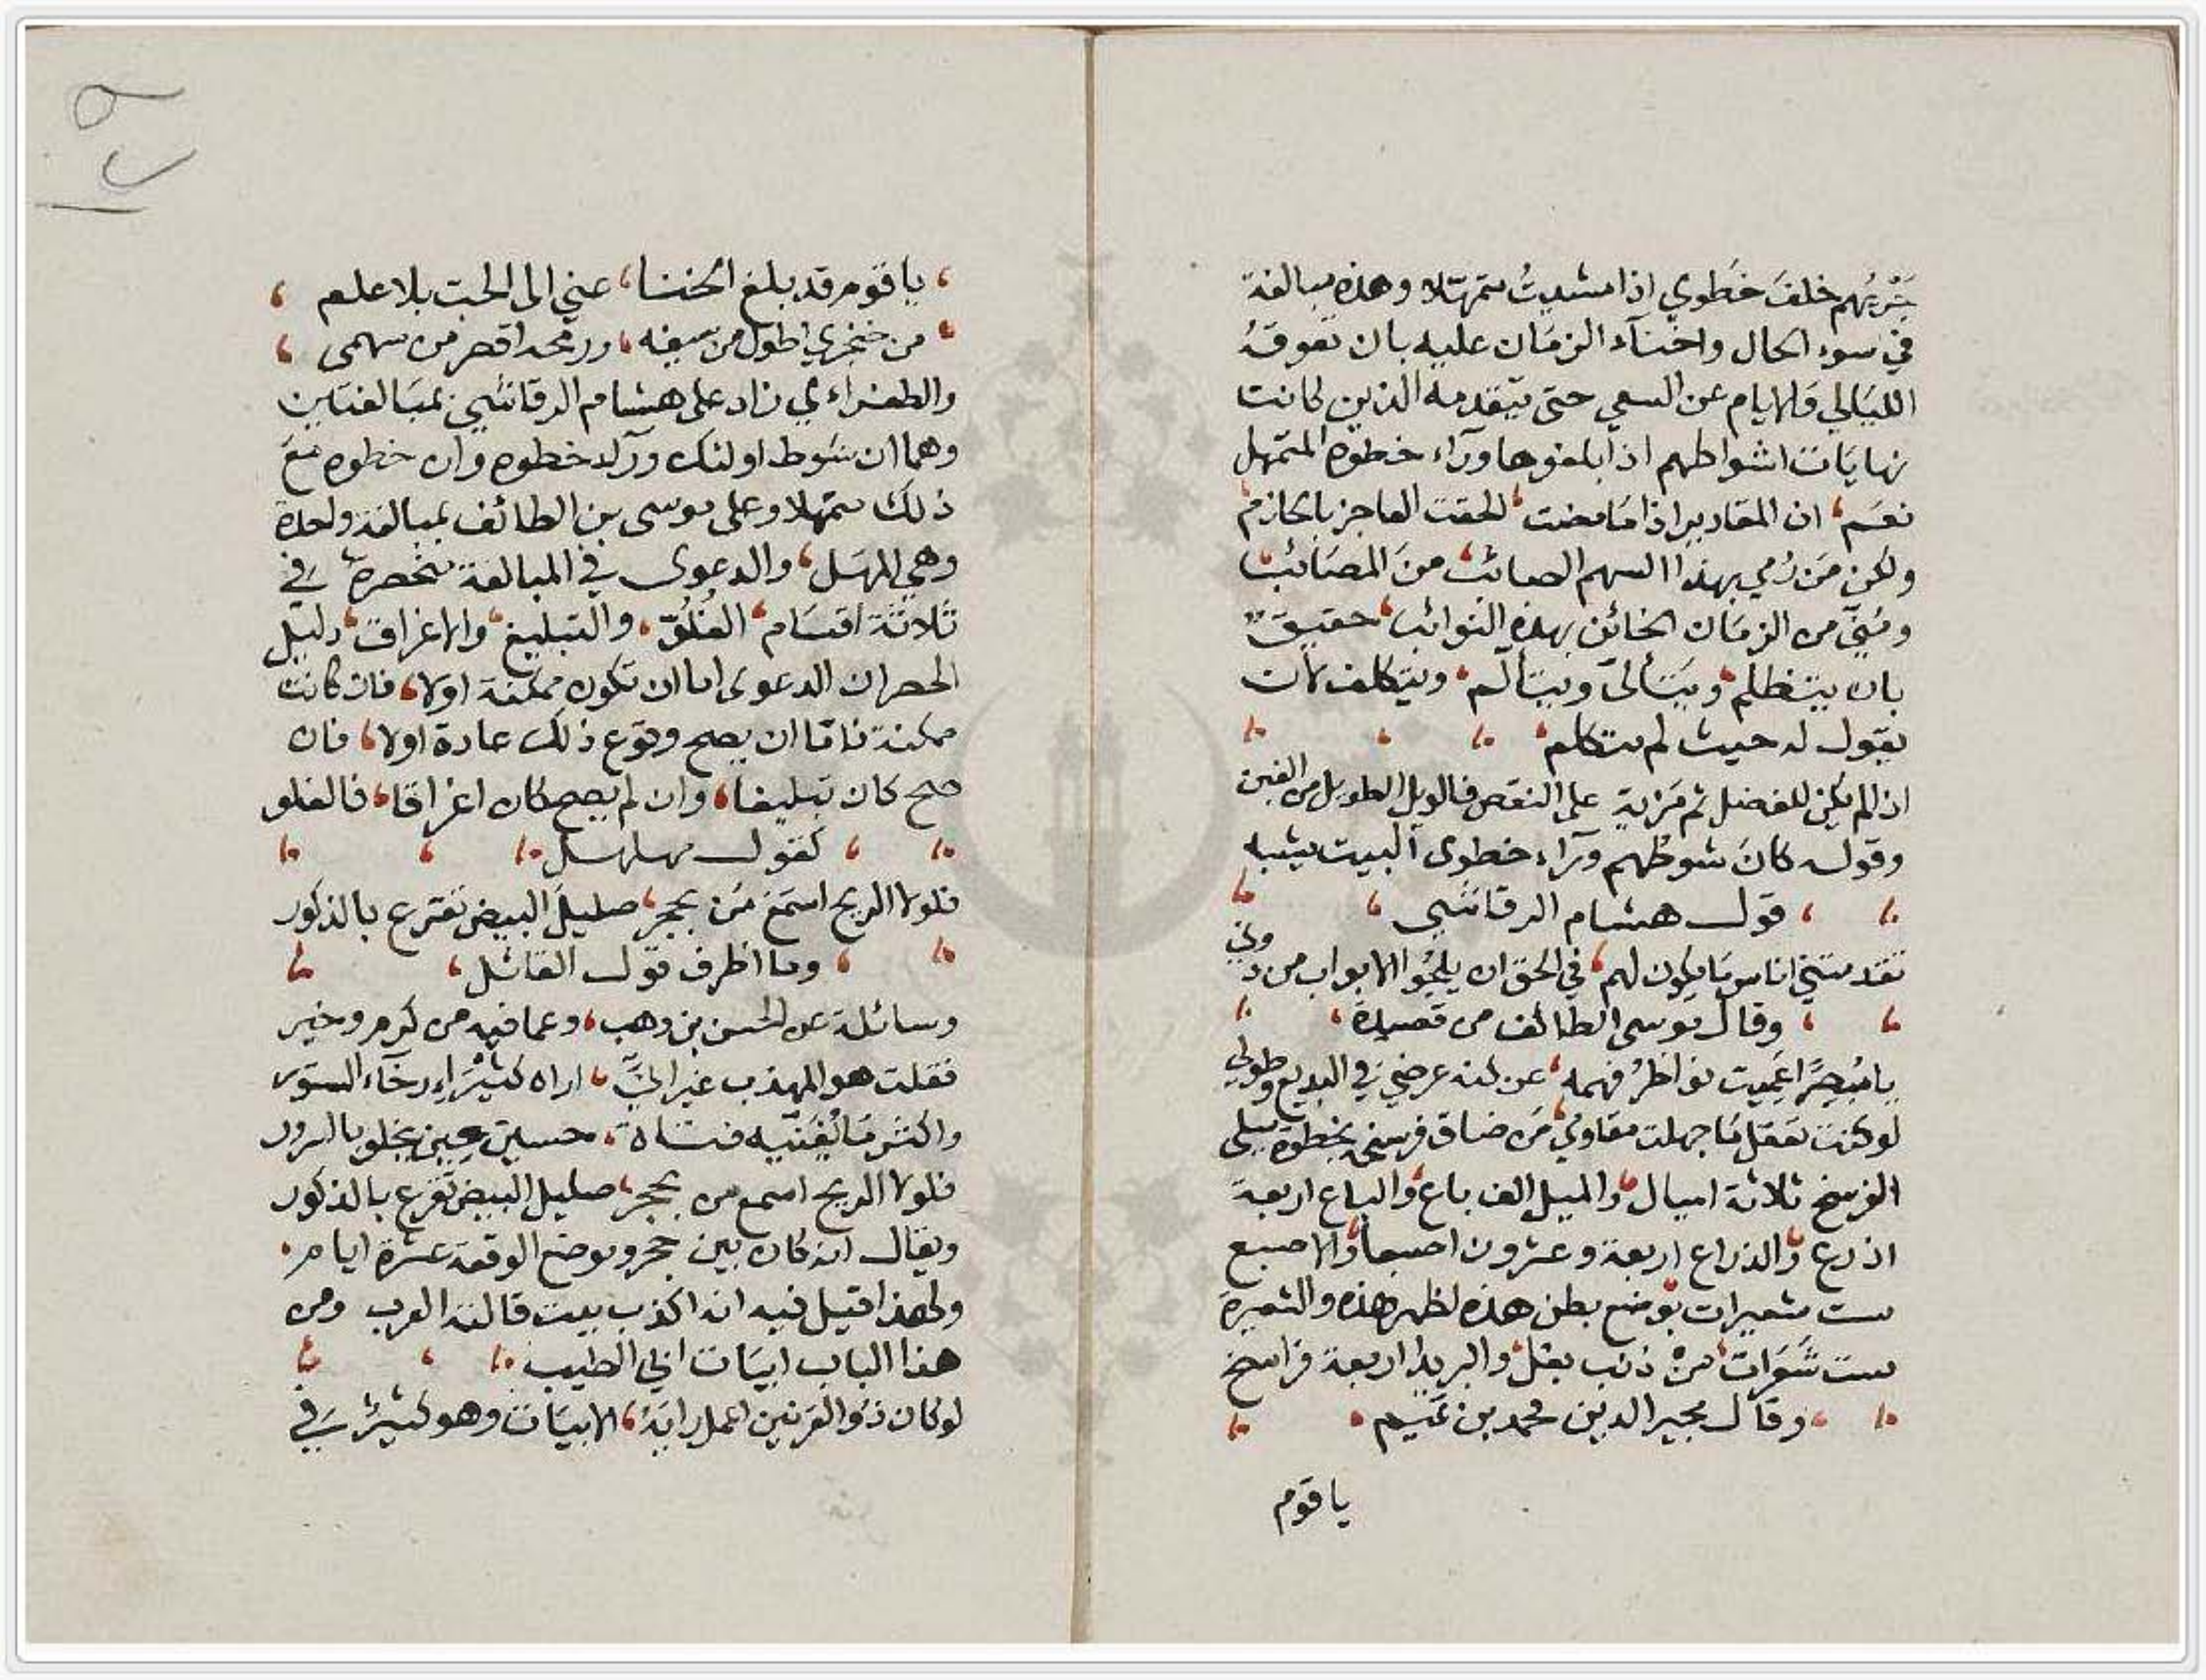 جَرْيُهم خلفَ خَطوي اذا مشيتُ متمهّلا وهذه مبالغة
في سوء الحال واخنآء الزمَان عليه بان تعوقهُ
الليَالي والايام عن السعي حتى يتقدمه الذين كانت
نهايَات اشواطهم اذا بلغوها ورَآء خطوه المتمهل
نعَم، ان المقادير اذا مَا مضت، الحقت العاجز بالحازم
ولكن مَن رُمي بهذا السهم الصائب، منَ المصَائب
ومُنِيَ من الزمَان الخائن بهذه النوائب، حقيقٌ
بان يتظلم، ويَتألى ويتألم، ويتكلف بان
يقول له حيث لم يتكلم،
اذا لم يكن للفضل ثم مَزية على النقص فالويل الطويل من الغبن
وقوله كانَ شوطهم ورَآء خطوى البيت يشبه
قول هشام الرقاشي
تقدمتني اناس مَا يكون لهم، في الحق ان يلجُوا الابواب من دوني
وقال موسى الطائف من قصيدة
يا مُبصرًا عميت نواظرُ فهمه، عن كنه عرضي في البديع وطولي
لو كنت تعقل مَا جهلت مقاولي، مَن ضاق فرسخه بخطوة ميلي
الفرسخ ثلاثة اميال، والميل الف باع، والباع اربعة
اذرع، والذراع اربعة وعشرون اصبعا، والاصبع
ست شعيرات، توضع بطن هذه لظهر هذه والشعيرة
ست شعَرات، منْ ذنب بغل، والبريد اربعة فراسخ
وقال مجير الدين محمد بن تميم
يا قوم
يا قوم قد بلغ الخنا، عني الى الحبت بلا علم
من خنجري اطول من سيفه، ورمحه اقصر من سهمى
والطغراءي زاد على هشام الرقاشي بمبَالغتين
وهما ان شَوط اولئك ورآء خطوه وان خطوه معَ
ذلك متمهلا وعلى موسى بن الطائف بمبالغة واحدة
وهي المهَل، والدعوى في المبالغة منحصرة في
ثلاثة اقسَام، الغُلوّ، والتبليغ، والاغراق، دليل
الحصر ان الدعوى اما ان تكون ممكنة اولا، فان كانت
ممكنة فامّا ان يصح وقوع ذلك عادة اولا، فان
صح كان تبليغا، وان لم يصح كان اغراقا، فالغلو
كقول مهلهل
فلولا الريح اسمَعَ مَن بحجر، صليلَ البيض تقرع بالذكور
وما اظرف قول القائل
وسائلة عن الحسن بن وهب، وعما فيه من كرم وخير
فقلت هو المهذب غير اني، اراه كثيرَ ارخآء الستور
واكثر مَا يُغَنّيه فتاة، حسين حين يخلو بالسرور
فلولا الريح اسمع من بحجر، صليل البيض تقرع بالذكور
ويقال انه كان بين حجر وموضع الوقعة عشرة ايام
ولهذا قيل فيه انه اكذب بيت قالته العرب ومن
هذا الباب ابيَات ابي الطيب
لو كان ذو القرنين اعمل رايَهُ، الابيَات وهو كثيرٌ في